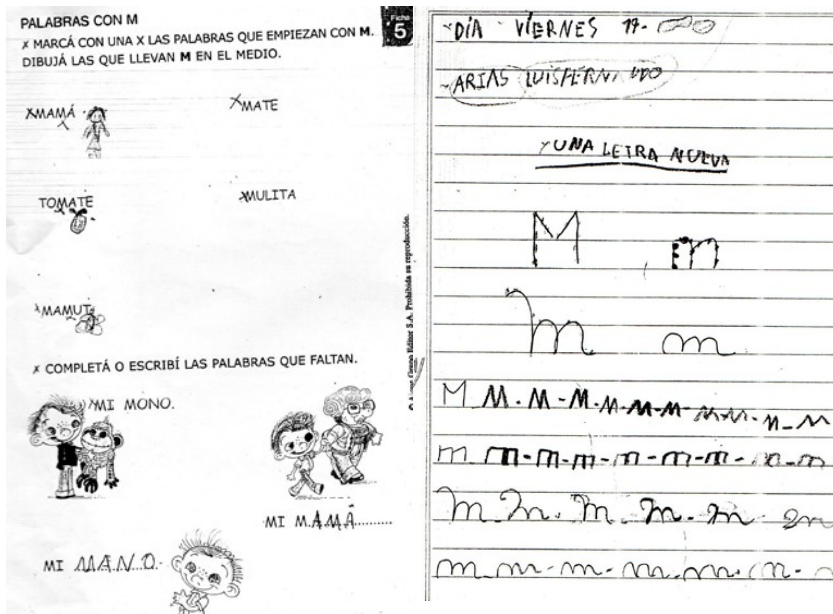 PALABRAS CON M
Ficha
5
x MARCÁ CON UNA X LAS PALABRAS QUE EMPIEZAN CON M.
DIBUJÁ LAS QUE LLEVAN M EN EL MEDIO.
XMAMÁ
XMATE
TOMATE
XMULITA
XMAMUT
x COMPLETÁ O ESCRIBÍ LAS PALABRAS QUE FALTAN.
XMI MONO.
MI MAMÁ.........
MI MANO.
Editor S.A. Prohibida su reproducción.
DÍA VIERNES
ARIAS LUIS
UNA LETRA NUEVA
M m
m m
M M. M-M-M-M-M-M-M-M-M
m m-m-m-m-m-m-m-m
m m. m. m. m m
m m-m-m. m. m. m-